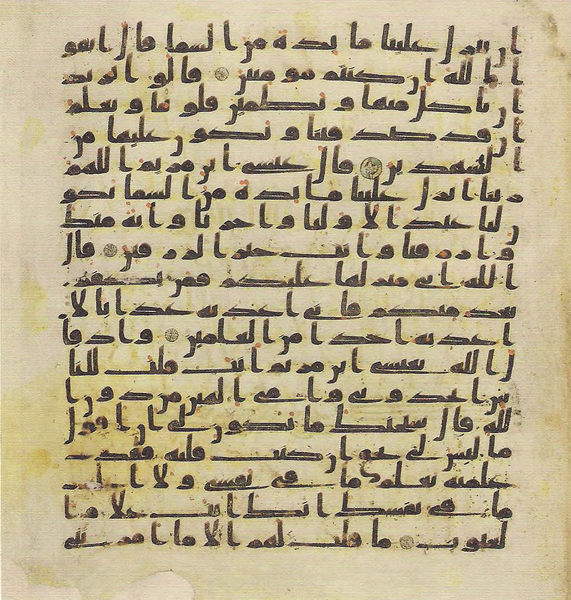 ان ينزل علينا مائدة من السما قال اتقو
ا الله ان كنتم مومنين قالوا نريد
ان ناكل منها وتطمين قلوبنا ونعلم
ان قد صدقتنا ونكون عليها من
الشهدين قال عيسى ابن مريم اللهم
ربنا انزل علينا مائدة من السما تكو
ن لنا عيدا لاولنا واخرنا واية منك
وارزقنا وانت خير الرزقين قال
الله اني منزلها عليكم فمن يكفر
بعد منكم فاني اعذبه عذابا لا
اعذبه احدا من العلمين واذ قا
ل الله يعيسى ابن مريم انت قلت للنا
س اتخذوني وامي الهين من دون ا
لله قال سبحنك ما يكون لي ان اقول
ما ليس لي بحق ان كنت قلته فقد
علمته تعلم ما في نفسي ولا اعلم
ما في نفسك انك انت علام ا
لغيوب ما قلت لهم الا ما امرتني